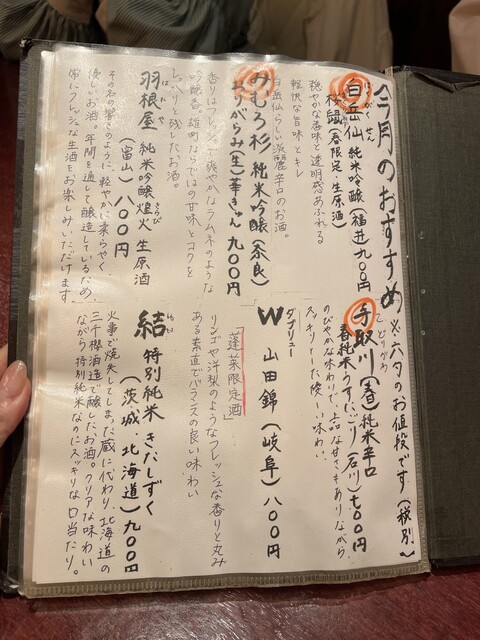 今月のおすすめ ※六勺のお値段です(税別)
はくがくせん
白岳仙 純米吟醸(福井)九〇〇円
(春限定・生原酒)
穏やかな香味と透明感あふれる
軽快な旨味とキレ
白岳仙らしい淡麗辛口のお酒。
みむろ杉 純米吟醸(奈良)
おりがらみ(生)華きゅん 九〇〇円
香りはフレッシュ爽やかなラムネのような
吟醸香。雄町ならではの甘味とコクを
しっかりと残したお酒。
はねや
羽根屋 純米吟醸煌火 生原酒
きらび
(富山) 八〇〇円
その名の響きのように、軽やかに柔らかく
優しいお酒。年間を通して醸造しているため、
常にフレッシュな生酒をお楽しみいただけます。
てどりがわ
手取川(春)純米辛口
春純米うすにごり(石川)七〇〇円
のびやかな味わりで、上品な甘さもありながら
スッキリとした優しい味わい。
ダブリュー
W 山田錦(岐阜)八〇〇円
「蓬莱限定酒」
リンゴや洋梨のようなフレッシュな香りと丸み
ある素直でバランスの良い味わい
ゆい
結 特別純米 きたしずく
(茨城・北海道)九〇〇円
火事で焼失してしまった蔵に代わり、北海道の
三千櫻酒造で醸したお酒。クリアな味わい
ながら特別純米なのにスッキリな口当たり。